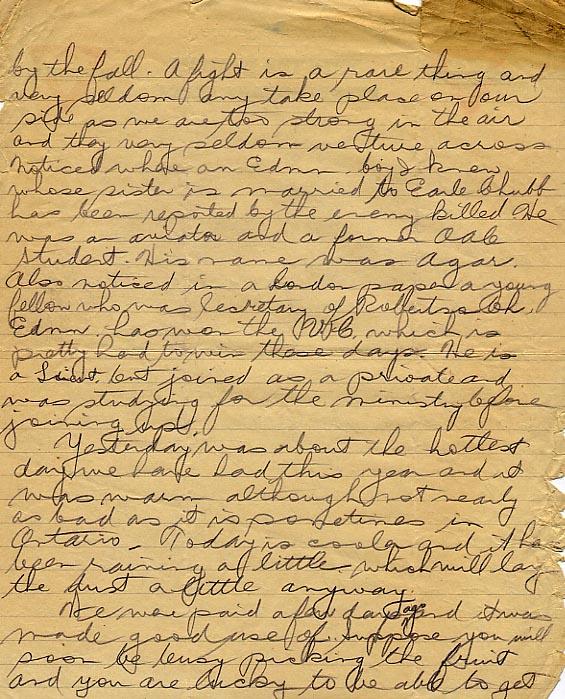 by the fall. A fight is a rare thing and
very seldom any take place on our
side as we are too strong in the air
and they very seldom venture across
Noticed where an Edmn. boy I knew
whose sister is married to Earle Chubb
has been reported by the enemy killed He
was an aviator and a former OAC
student. His name was Agar.
Also noticed in a London paper a young
fellow who was Secretary of Robertson Ch.
Edmn. has won the V.C. which is
pretty hard to win these days. He is
a Lieut. but joined as a private and
was studying for the ministry before
joining up.
Yesterday was about the hottest
day we have had this year and it
was warm although not nearly
as bad as it is sometimes in
Ontario. Today is cooler and it has
been raining a little which will lay
the dust a little anyway.
We were paid a few days ago and it was
made good use of. Suppose you will
soon be busy picking the fruit
and you are lucky to be able to get